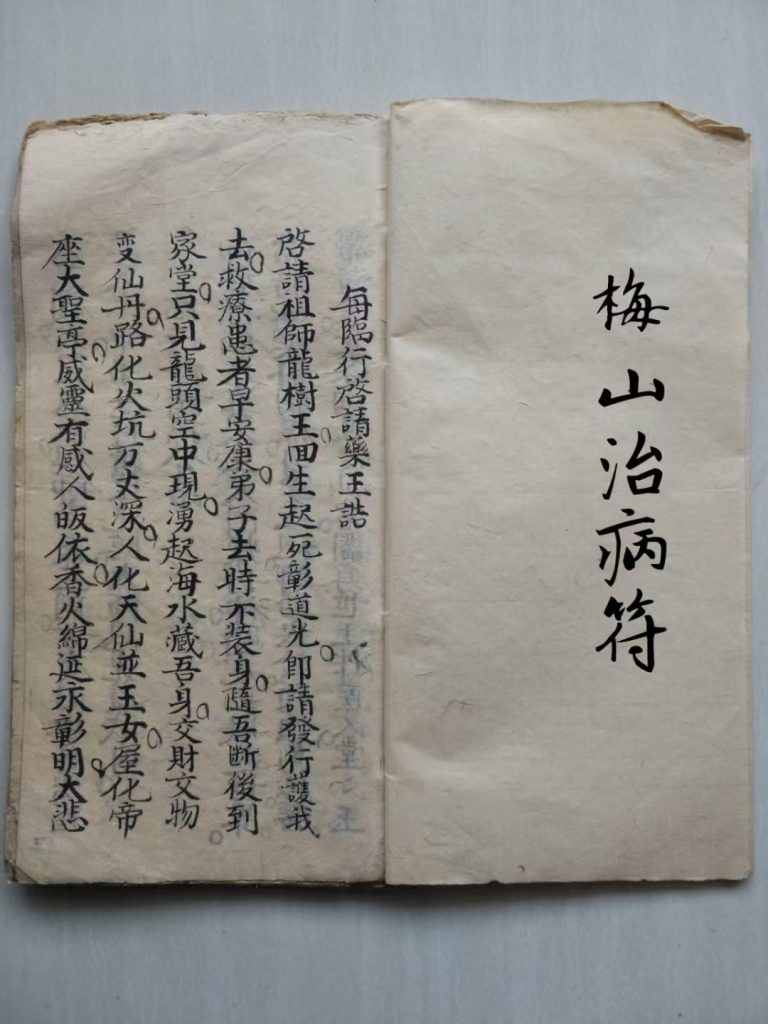 梅山治病符
每臨行啓請藥王誥
啓請祖師龍樹王回生起死彰道光即請發行護我
去救療患者早安康弟子去時不装身隨吾断後到
家堂只見龍頭空中現湧起海水藏吾身交財交物
变仙丹路化火坑万丈深人化天仙並玉女屋化帝
座大聖亭威靈有感人皈依香火綿延永彰明大悲